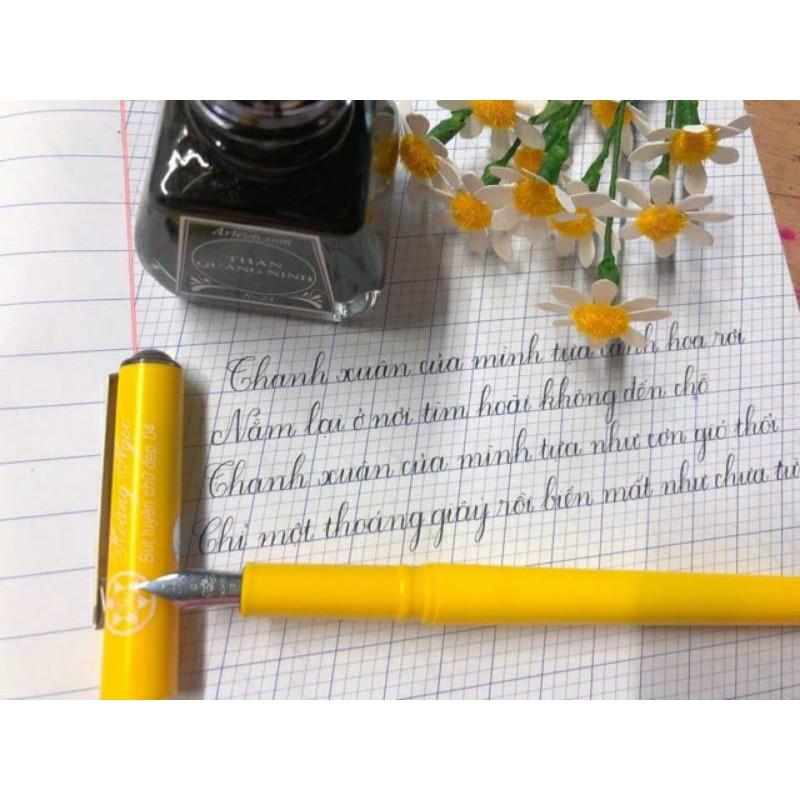 Artevn.com
THAN
QUẢNG NINH
No.21
Thanh xuân của mình tựa cánh hoa rơi
Nằm lại ở nơi tìm hoài không đến chỗ
Thanh xuân của mình tựa như cơn gió thổi
Chỉ một thoáng giây rồi biến mất như chưa từ
Hoàng Ngọc
Bút luyện chữ đẹp 04